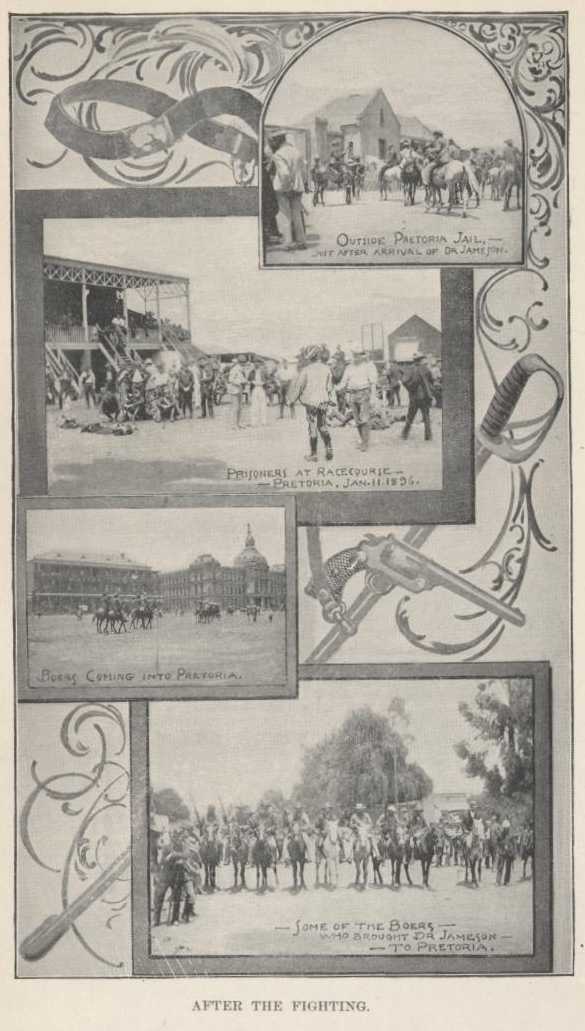 OUTSIDE PRETORIA JAIL,—
JUST AFTER ARRIVAL OF DR JAMESON.
PRISONERS AT RACECOURSE—
—PRETORIA, JAN. 11. 1896.
BOERS COMING INTO PRETORIA.
—SOME OF THE BOERS—
WHO BROUGHT DR JAMESON—
—TO PRETORIA.
AFTER THE FIGHTING.